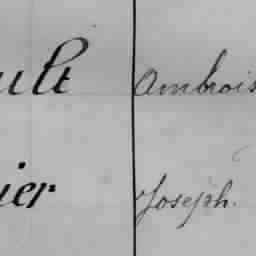 ult Ambrois
ier Joseph.